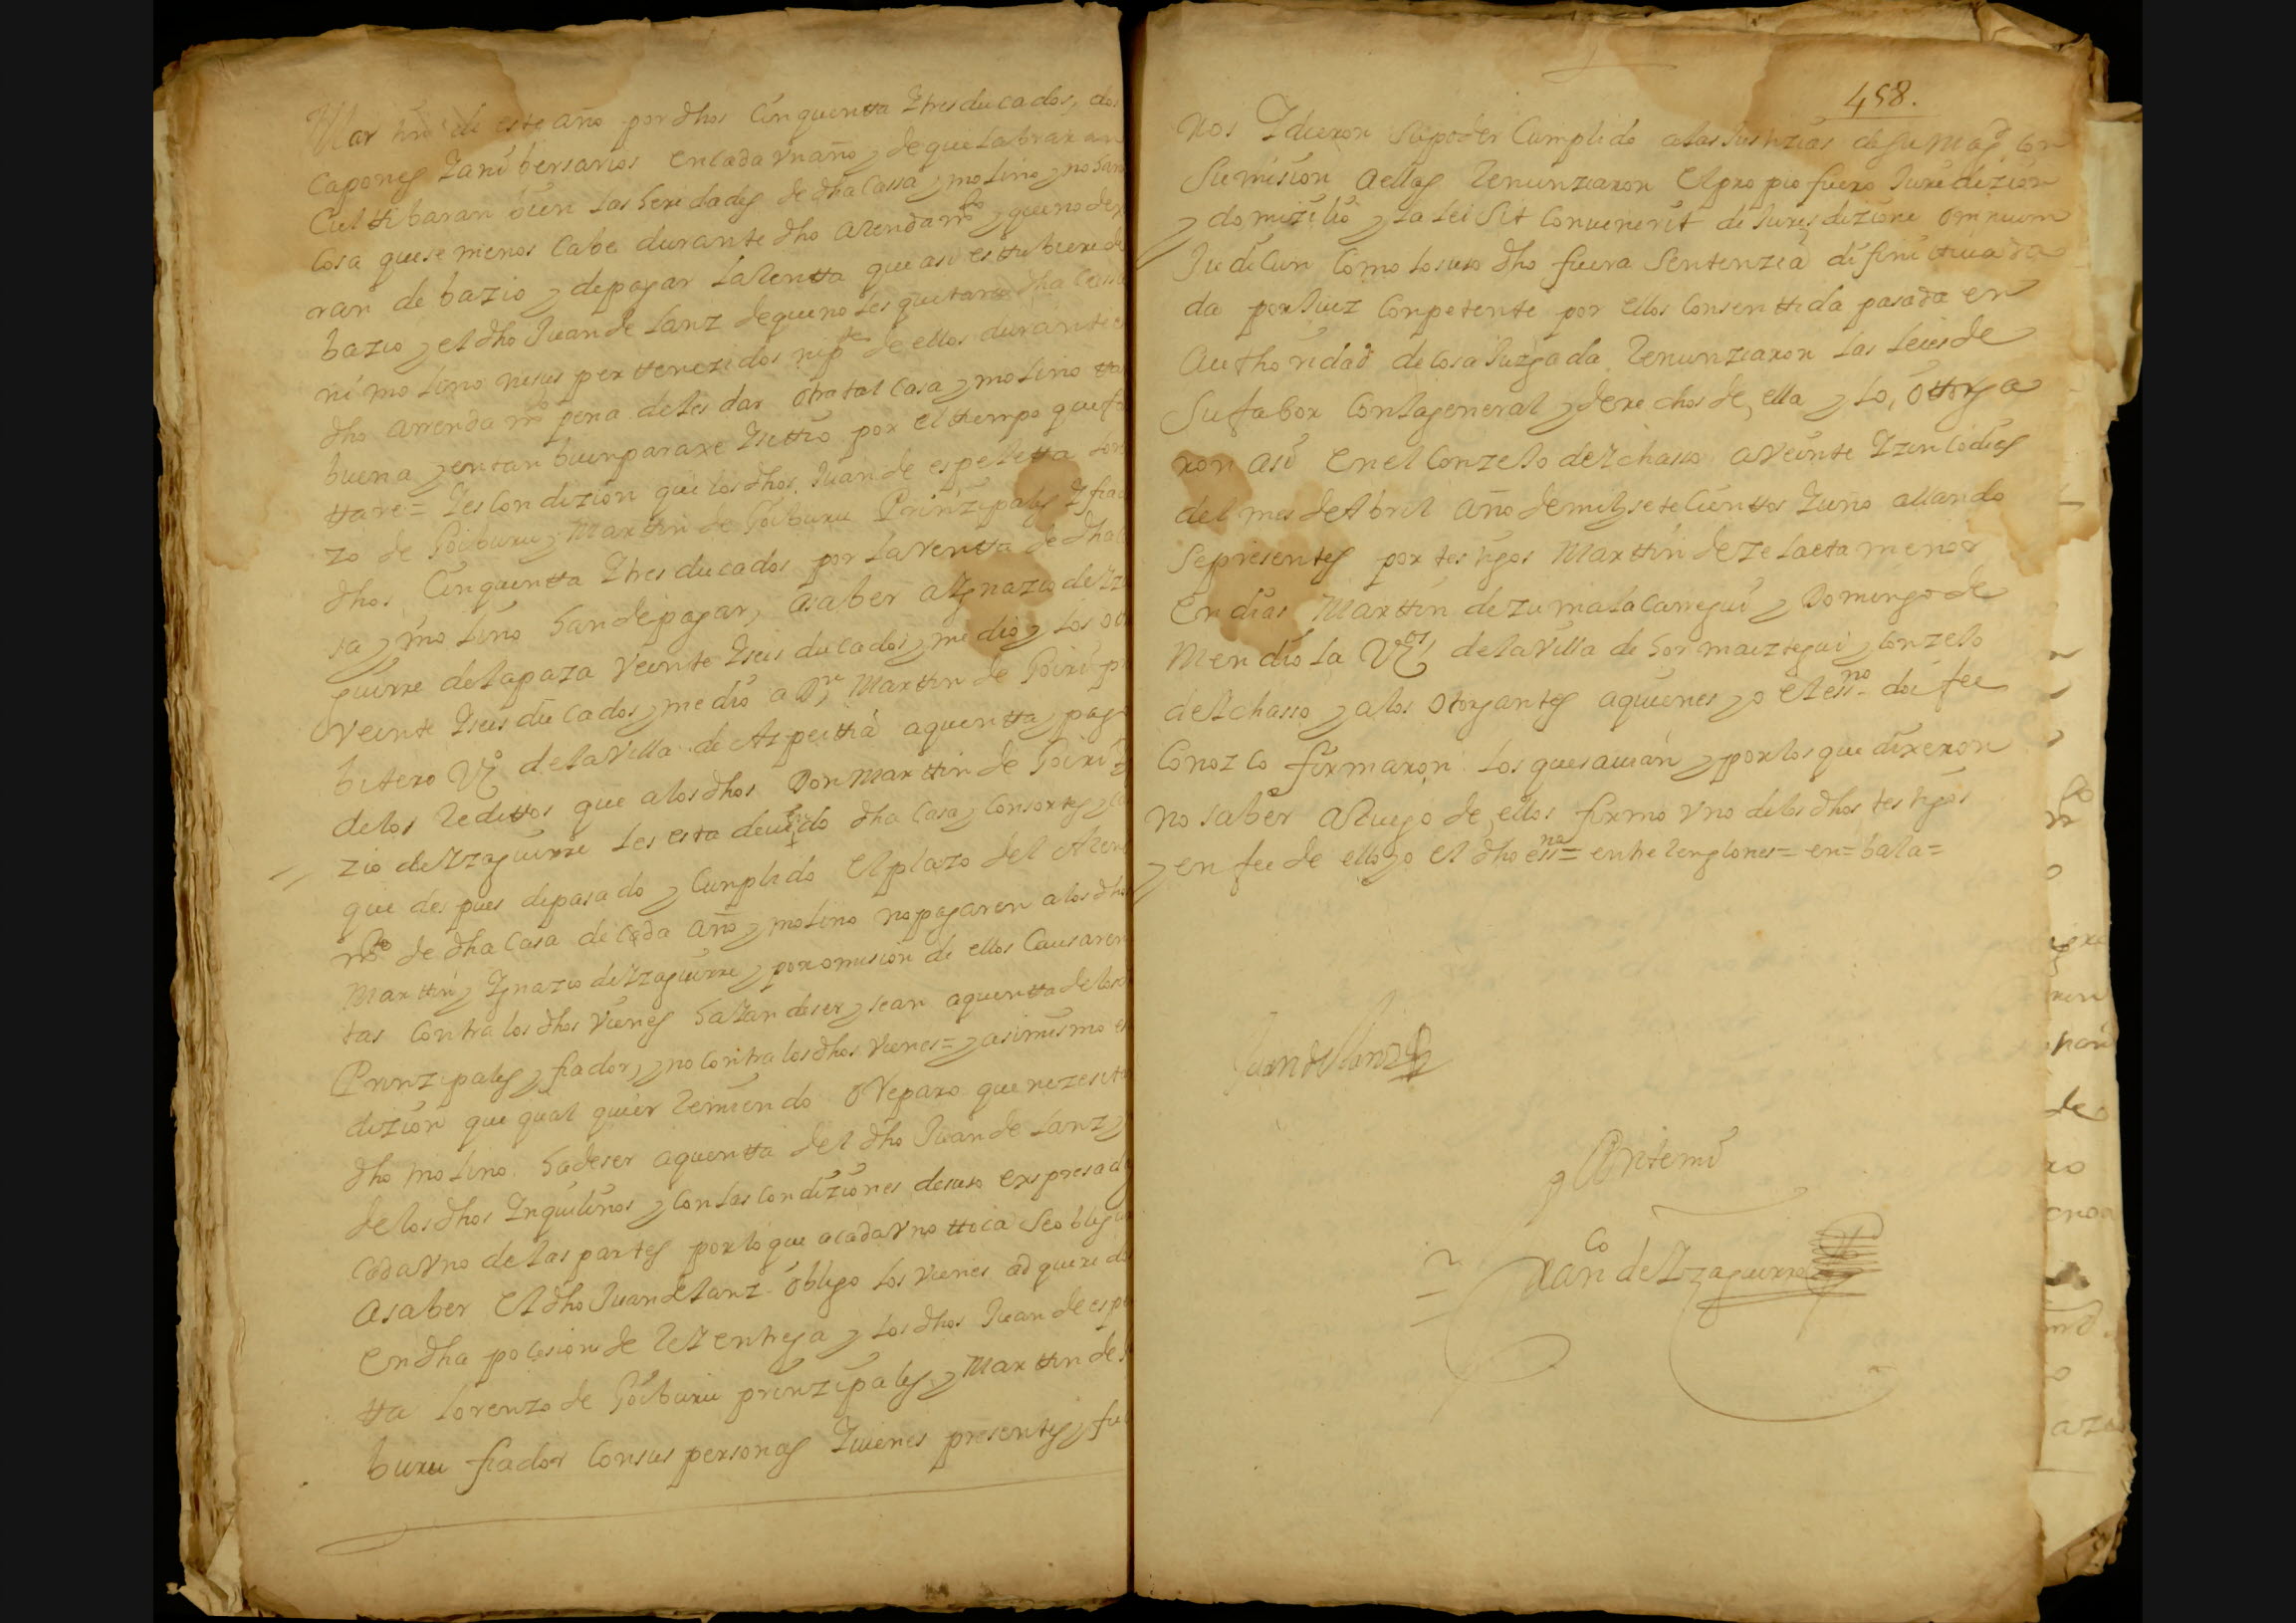 Mar tin de este año por dhos Cinquentta Ytres ducados, dos
capones Yanibersarios encada vn año, y de que labraran
Culttibaran bien las heredades de dha Cassa y molino y no har
Cosa que se menos Cabe durante dho arendamto, y que no de
ran de bazio y de pagar la Rentta que asi esttubiere de
bazio y el dho Juan de Lanz de que no les quitara dha Cassa
ni molino ni sus perttenezidos ni pte de ellos durante el
dho arrendamto pena de les dar otra tal Casa y molino ta
buena y en tan buen paraxe Ysittio por el tiempo que fa
ttare = Yes Condizion que los dhos Juan de espeletta Lore
zo de Goiburu y Marttin de Goiburu Prinzipales Yfiad
dhos Cinquentta Ytres ducados por la Rentta de dha C
sa y molino han de pagar, asaber a Ygnazio de Yza
guirre de la paza Veinte Yseis ducados y medio y los ot
Veinte Yseis ducados y medio a Dn Marttin de Goiri p
bitero Vo de la Villa de Azpeittia a quentta y pago
de los Redittos que a los dhos Don Marttin de Goiri Y
zio de Yzaguirre les esta deuiendo dha Casa y Consortes y
que despues de pasado y Cunplido el plazo del Aren
mto de dha Casa de cada año y molino no pagaren a los dho
Marttin y Ygnazio de Yzaguirre y por omision de ellos Causaren
tas Contra los dhos vienes haian de ser y sean a quentta de los
Prinzipales y fiador, y no contra los dhos vienes = y asi mismo es
dizion que qual quier Remiendo o Reparo que nezesita
dho molino ha de ser a quentta del dho Juan de Lanz y
de los dhos Ynquilinos y con las condiziones de suso expresad
Cada vno de las partes por lo que a cada vno ttoca se obliga
Asaber El dho Juan de Lanz obligo los vienes ad queridos
En dha posesion de Rez entrega y los dhos Juan de espe
tta Lorenzo de Goiburu prinzipales y Marttin de
buru fiador Con sus personas Yuienes presentes y fu
458.
ros Ydieron su poder Cumplido a las Justizias de su Magd Con
Sumision a ellas Renunziaron El propio fuero Jurisdizion
y domizilio y la lei sit convenerit de Jurisdizione omnium
Judicun Como lo suso dho fuera Sentenzia difinitiua da
da por Juez Conpetente por ellos Consenttida pasada en
Authoridad de Cosa Juzgada Renunziaron las Leies de
Su fabor Con la general y derechos de, ella y lo, ottorga
ron asi en el Conzeto de Ychasso a Veinte Yzinco dias
del mes de Abril año de mil y sete Cienttos Yuno allando
se presentes por testigos Marttin de Zelaeta menor
en dias Marttin de Zumalacarregui y Domingo de
Mendiola Vos de la Villa de hormaiztegui y Conzeto
de Ychasso y a los otorgantes a quienes yo el essno doi fee
Conozco firmaron los que sauian y por los que dixeron
no saber a Ruego de, ellos firmo vno de los dhos testigos
y en fee de ello yo el dho essno = entre Renglones = en = bala =
Juan de Lanz
Ante mi
Franco de Yzaguirre